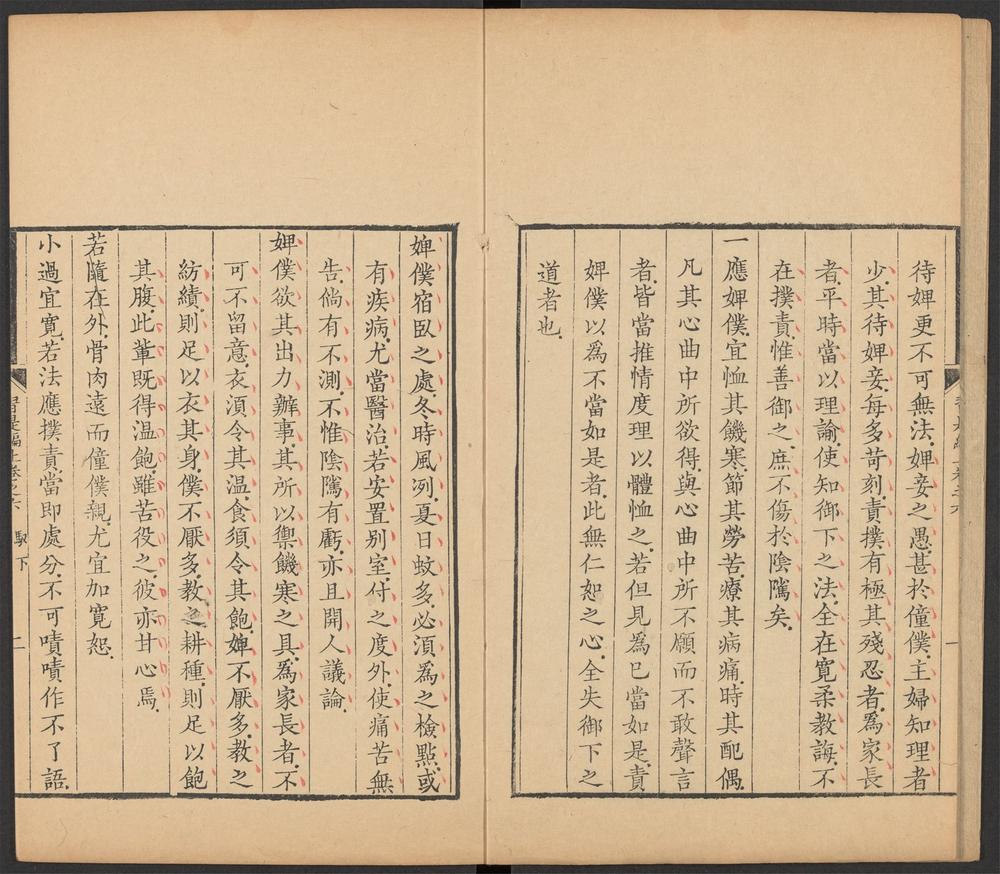 待婢更不可無法婢妾之愚甚於僮僕主婦知理者
少其待婢妾每多苛刻責撲有極其殘忍者爲家長
者平時當以理諭使知御下之法全在寛柔教誨不
在撲責惟善御之庶不傷於陰隲矣
一應婢僕宜恤其饑寒節其勞苦療其病痛時其配偶
凡其心曲中所欲得與心曲中所不願而不敢聲言
者皆當推情度理以體恤之若但見爲已當如是責
婢僕以爲不當如是者此無仁恕之心全失御下之
道者也
一
婢僕宿臥之處冬時風冽夏日蚊多必須爲之檢點或
有疾病尤當醫治若安置别室付之度外使痛苦無
告倘有不測不惟陰隲有虧亦且開人議論
婢僕欲其出力辦事其所以禦饑寒之具爲家長者不
可不留意衣須令其温食須令其飽婢不厭多教之
紡績則足以衣其身僕不厭多教之耕種則足以飽
其腹此輩既得温飽雖苦役之彼亦甘心焉
若隨在外骨肉遠而僮僕親尤宜加寬恕
小過宜寬若法應撲責當即處分不可嘖嘖作不了語
編上卷之六 馭下 二